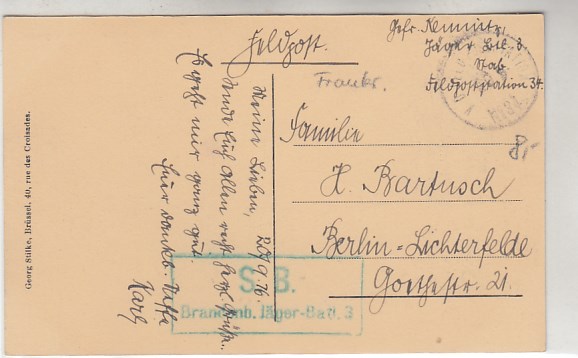 Feldpost.
Gefr. Kemnitz,
Jäger Btl. 3
Stab
Feldpoststation 34.
Frankr.
8,-
Familie
H. Bartusch
Berlin-Lichterfelde
Goethestr. 21.
Meine Lieben, 20/9.16.
sende Euch allen recht herzl. Grüße.
Es geht mir ganz gut.
Euer dankb. Neffe
Karl
S. B.
Brandenb. Jäger-Batl. 3
Georg Stilke, Brüssel, 40, rue des Croisades.